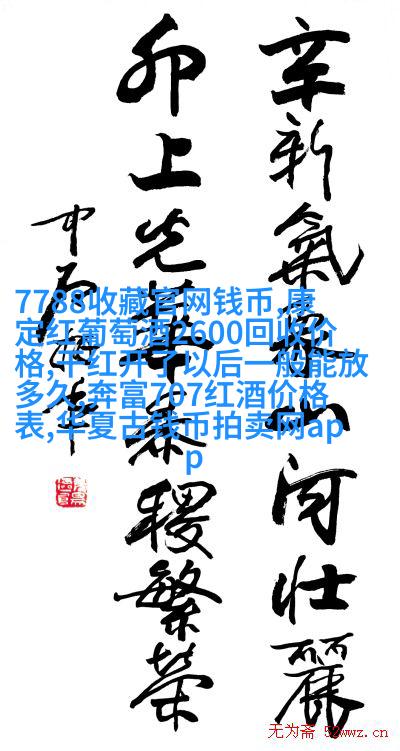 辛新氣山河壯麗
卯上光華稷繁榮
7788收藏官网钱币,康
定红葡萄酒2600回收价
格,干红开了以后一般能放
多久,奔富707红酒价格
表,华夏古钱币拍卖网ap
p
无为斋 52wwz.cn